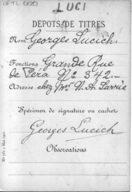 LUCI
DÉPOTS DE TITRES
Nom Georges Lucich
Fonctions Grande Rue
de Péra No 342
Adresse chez Mrs H. A.
Spécimen de signature ou cachet
Georges Lucich
Observations